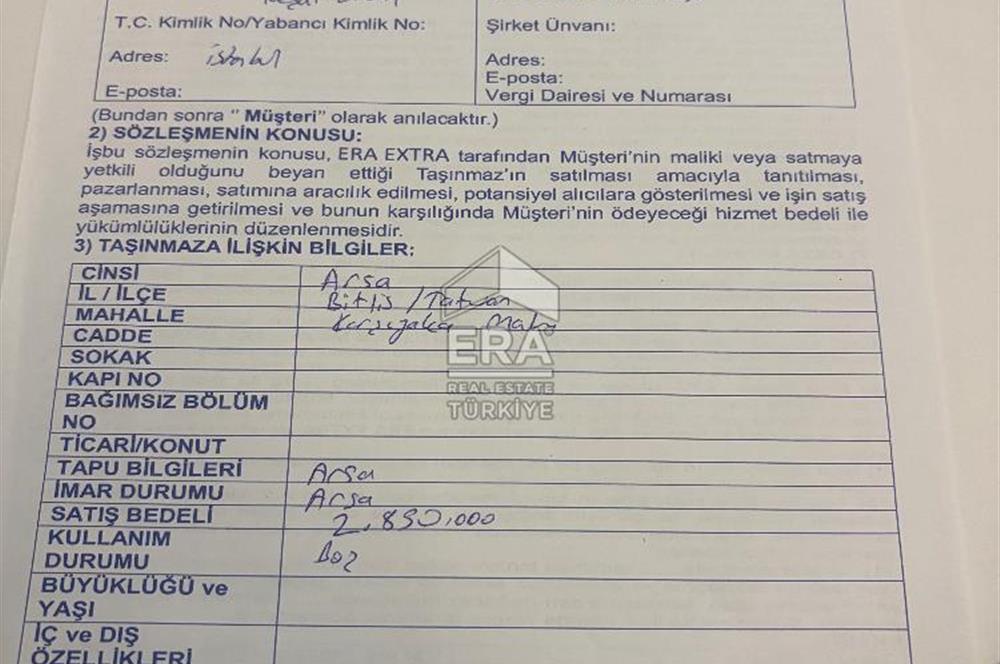 T.C. Kimlik No/Yabancı Kimlik No:
Şirket Ünvanı:
Adres: istanbul
Adres:
E-posta:
E-posta:
Vergi Dairesi ve Numarası
(Bundan sonra “ Müşteri” olarak anılacaktır.)
2) SÖZLEŞMENİN KONUSU:
İşbu sözleşmenin konusu, ERA EXTRA tarafından Müşteri'nin maliki veya satmaya
yetkili olduğunu beyan ettiği Taşınmaz'ın satılması amacıyla tanıtılması,
pazarlanması, satımına aracılık edilmesi, potansiyel alıcılara gösterilmesi ve işin satış
aşamasına getirilmesi ve bunun karşılığında Müşteri'nin ödeyeceği hizmet bedeli ile
yükümlülüklerinin düzenlenmesidir.
3) TAŞINMAZA İLİŞKİN BİLGİLER:
CİNSİ Arsa
İL / İLÇE Bitlis / Tatvan
MAHALLE Karşıyaka Mah
CADDE
SOKAK
KAPI NO
BAĞIMSIZ BÖLÜM
NO
TİCARİ/KONUT
TAPU BİLGİLERİ Arsa
İMAR DURUMU Arsa
SATIŞ BEDELİ 2.890.000
KULLANIM
DURUMU Boş
BÜYÜKLÜĞÜ ve
YAŞI
İÇ ve DIŞ
ÖZELLİKLERİ
ERA
REAL ESTATE
TÜRKİYE